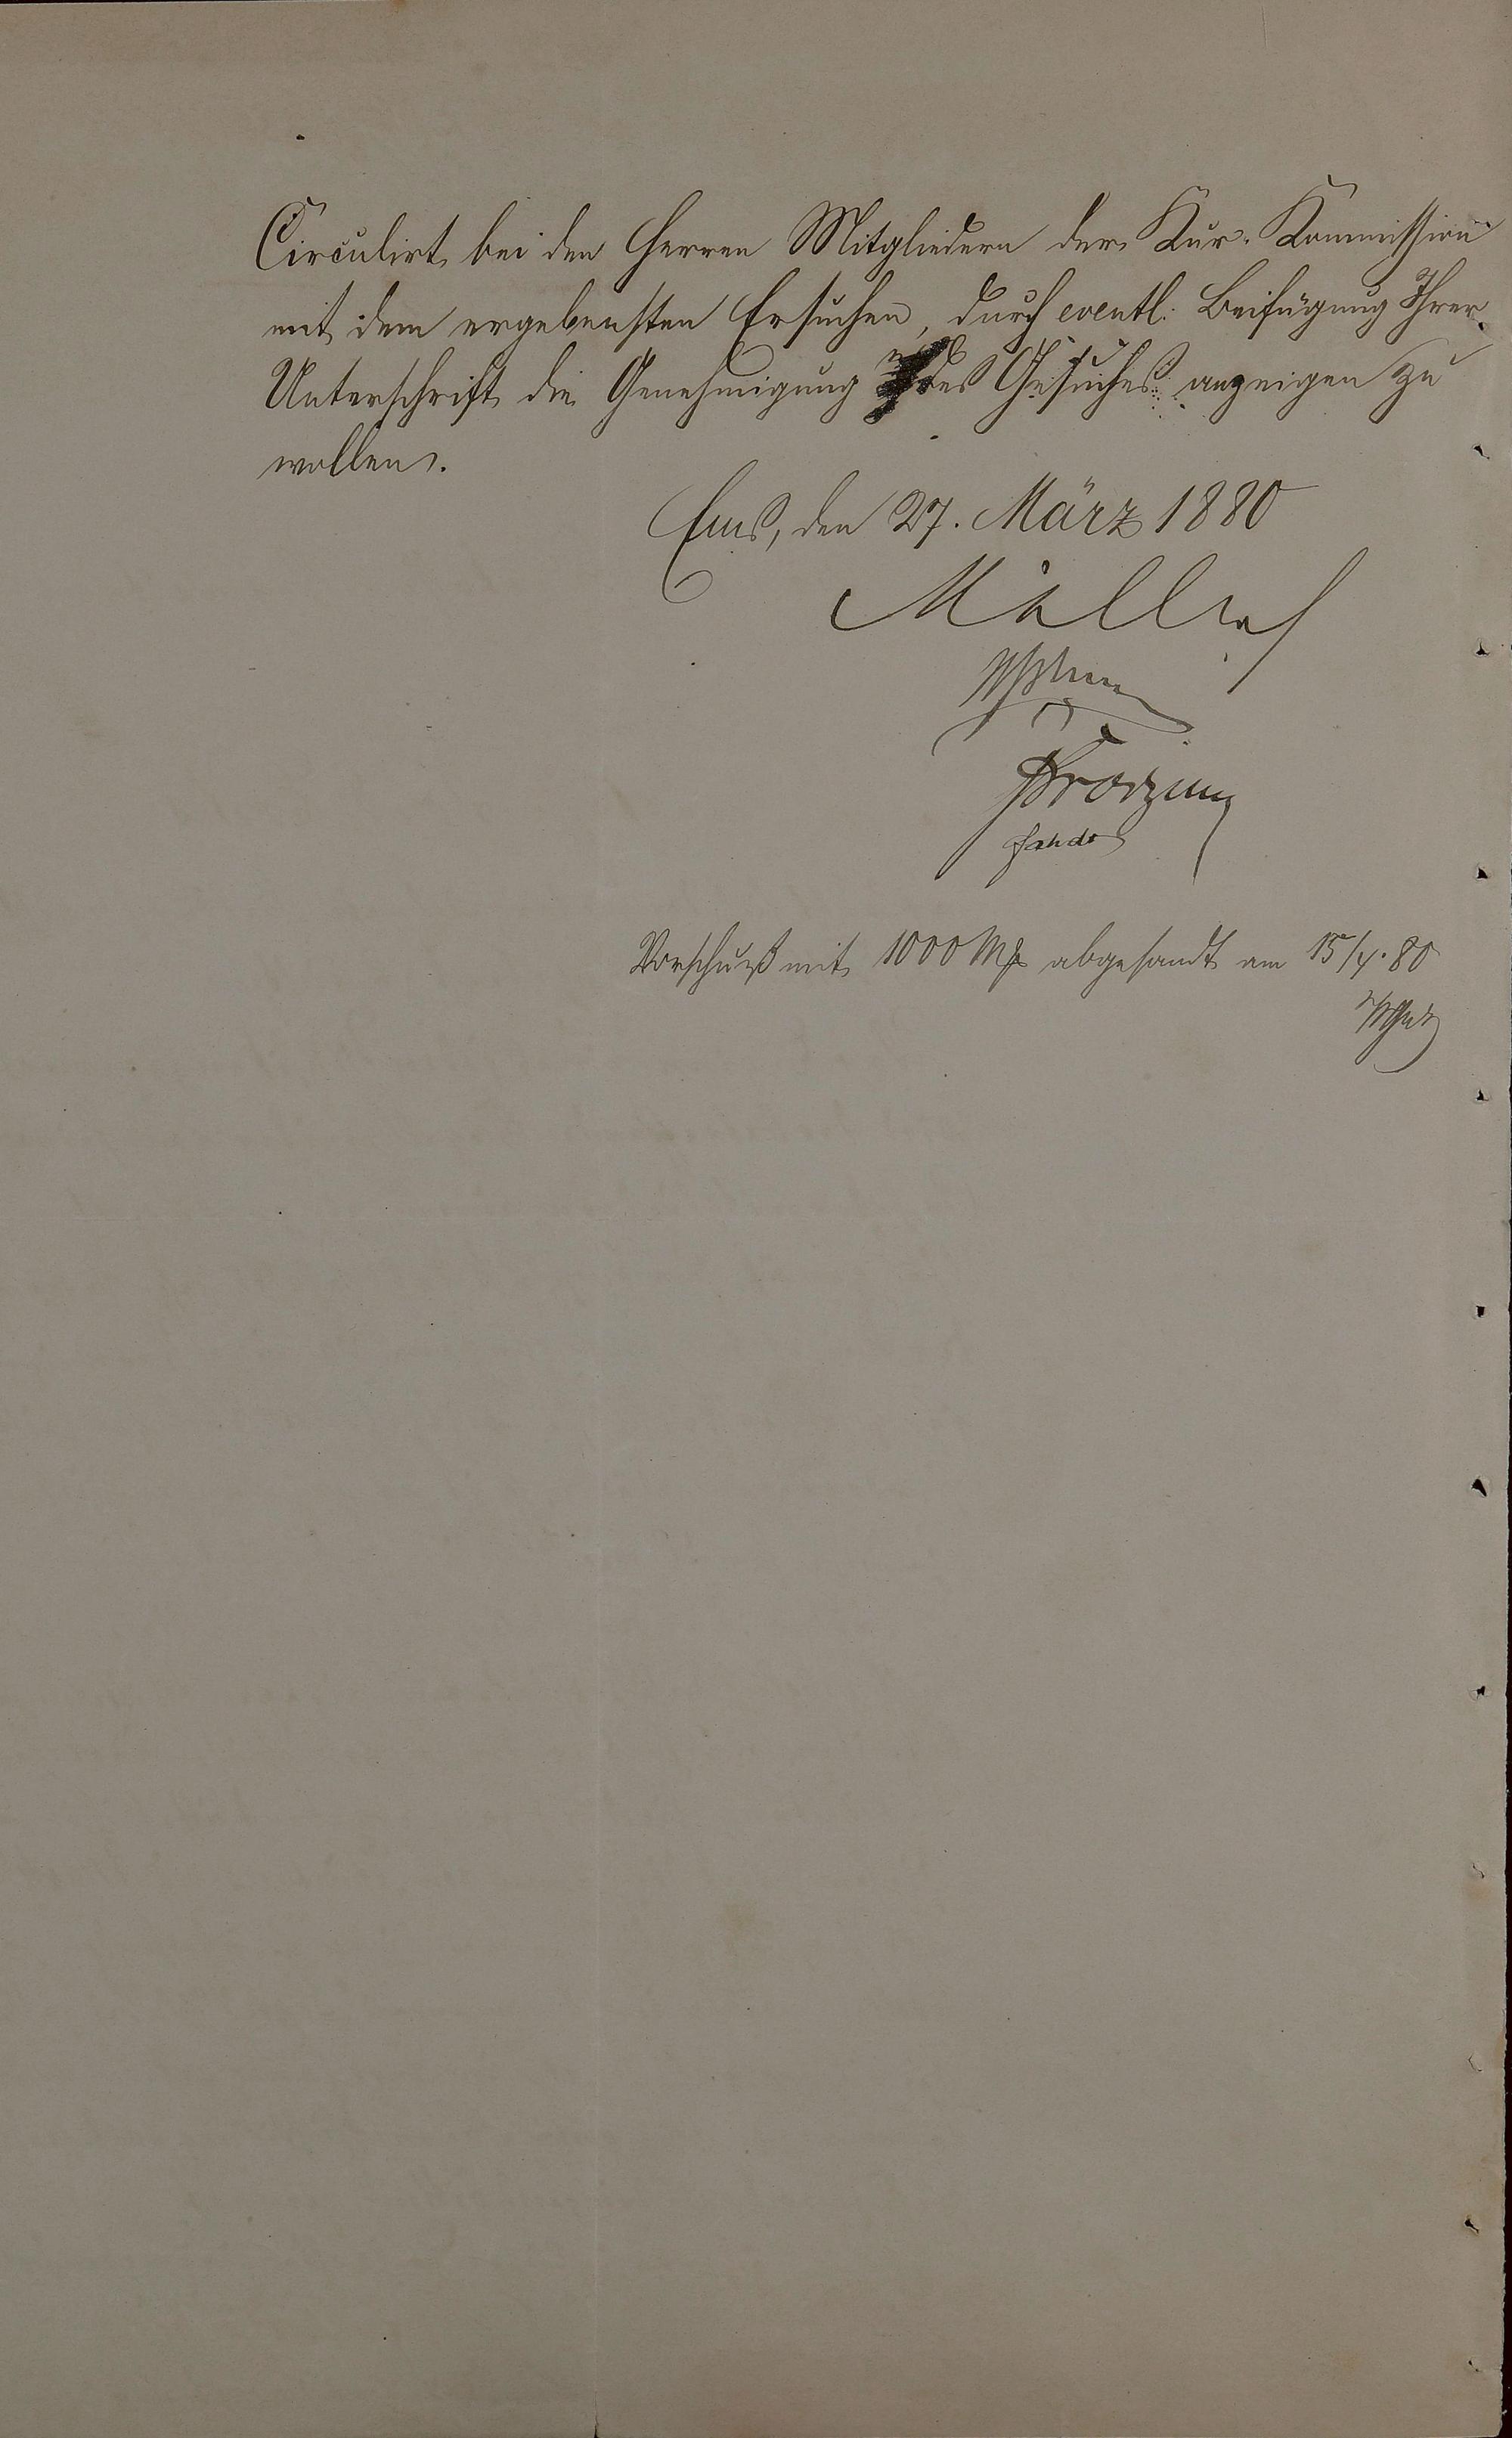 Circulirt bei den Herren Mitgliedern der Kur-Kommission
mit dem ergebensten Ersuchen, durch eventl. Beifügung Ihrer
Unterschrift die Genehmigung des Gesuches anzeigen zu
wollen.
Ems, den 27. März 1880
Vorschuß mit 1000 Mk abgesandt am 15/4.80